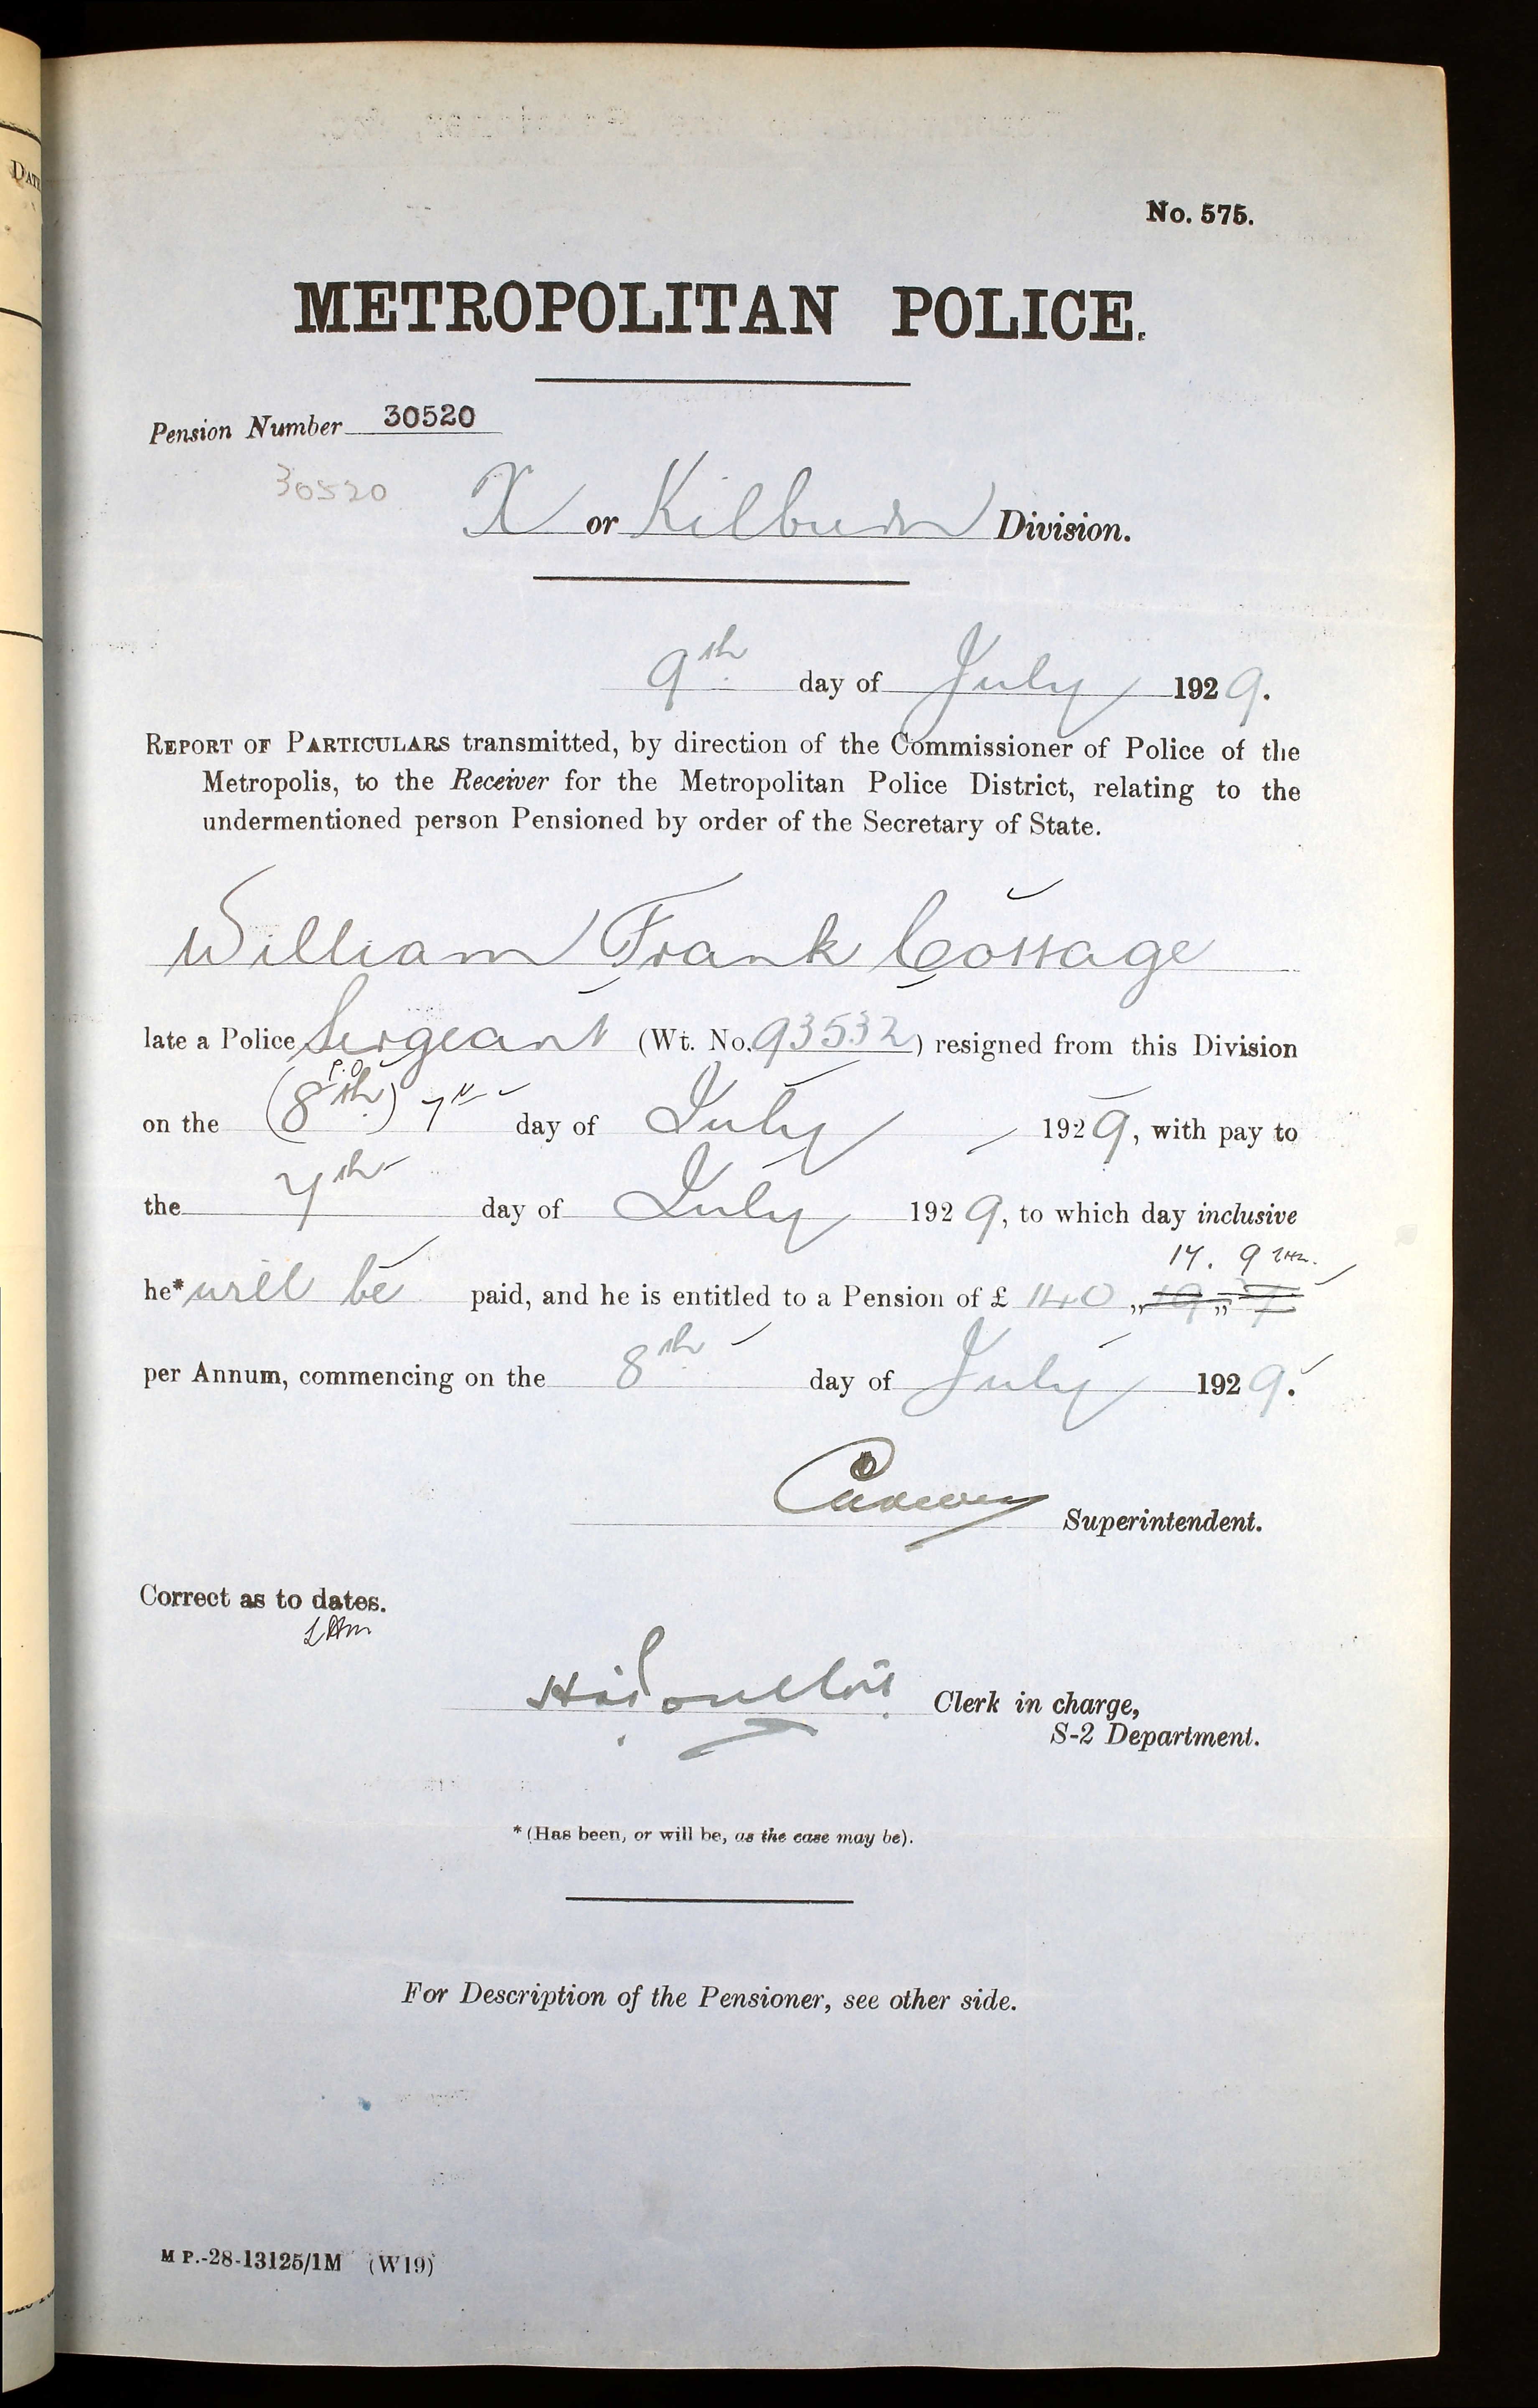 DATE
No. 575.
METROPOLITAN POLICE.
Pension Number 30520
30520
X or Kilburn Division.
9th day of July 1929.
REPORT OF PARTICULARS transmitted, by direction of the Commissioner of Police of the
Metropolis, to the Receiver for the Metropolitan Police District, relating to the
undermentioned person Pensioned by order of the Secretary of State.
William Frank Cossage
late a Police Sergeant (Wt. No. 93532) resigned from this Division
on the (8th) 7th day of July 1929, with pay to
the 7th day of July 1929, to which day inclusive
17. 9
he* will be paid, and he is entitled to a Pension of £ 140 „ 19 „ 7
per Annum, commencing on the 8th day of July 1929.
Superintendent.
Correct as to dates.
Clerk in charge,
S-2 Department.
* (Has been, or will be, as the case may be).
For Description of the Pensioner, see other side.
M P.-28-13125/1M (W19)